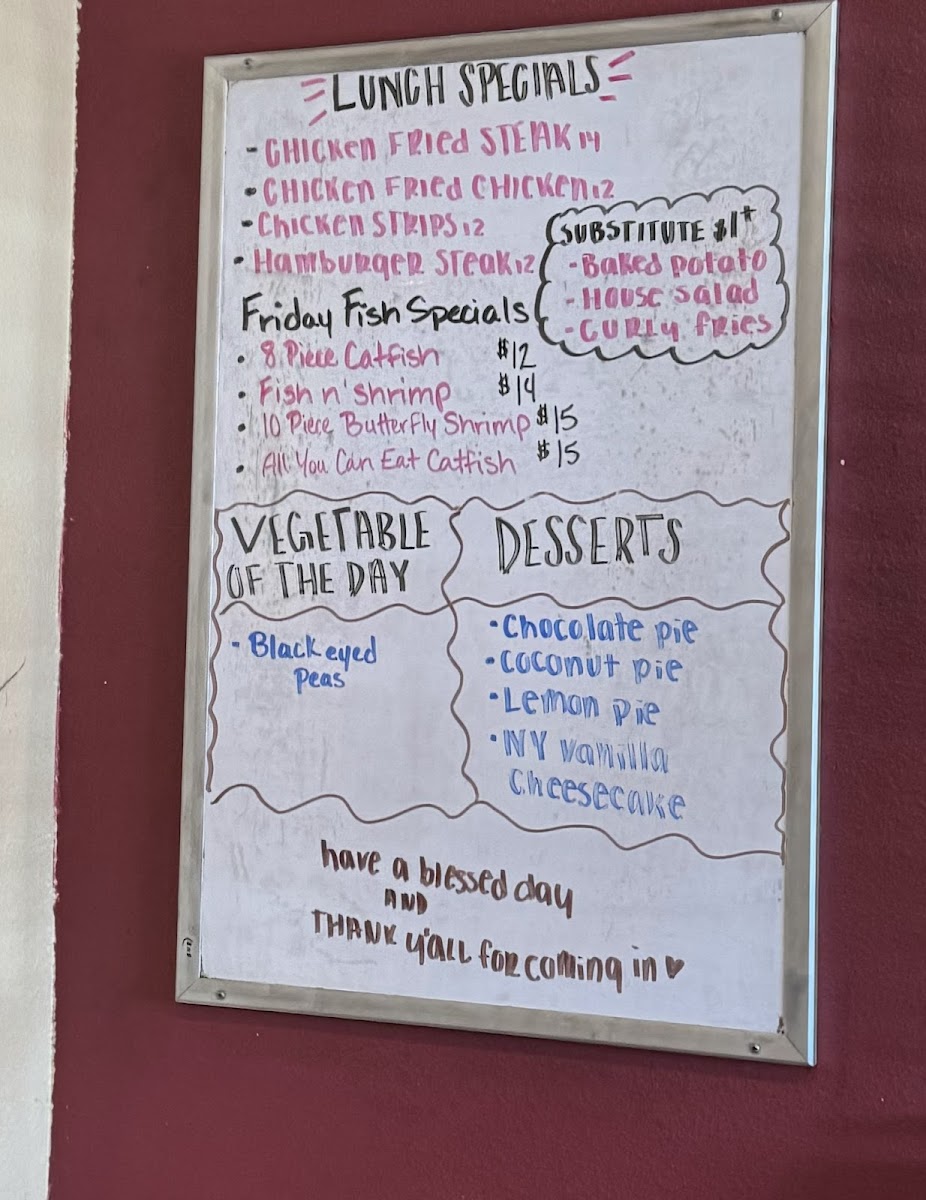 LUNCH SPECIALS
- CHICKEN FRIED STEAK 14
• CHICKEN FRIED CHICKEN 12
- CHICKEN STRIPS 12
• HAMBURGER STEAK 12
SUBSTITUTE $1+
- BAKED POTATO
- HOUSE SALAD
- CURLY FRIES
Friday Fish Specials
• 8 Piece Catfish $12
• Fish n' shrimp $14
• 10 Piece Butterfly Shrimp $15
• All You Can Eat Catfish $15
VEGETABLE
OF THE DAY
- Black eyed
Peas
DESSERTS
• Chocolate pie
• Coconut pie
• Lemon pie
• NY vanilla
Cheesecake
have a blessed day
AND
THANK y'all for coming in ♥